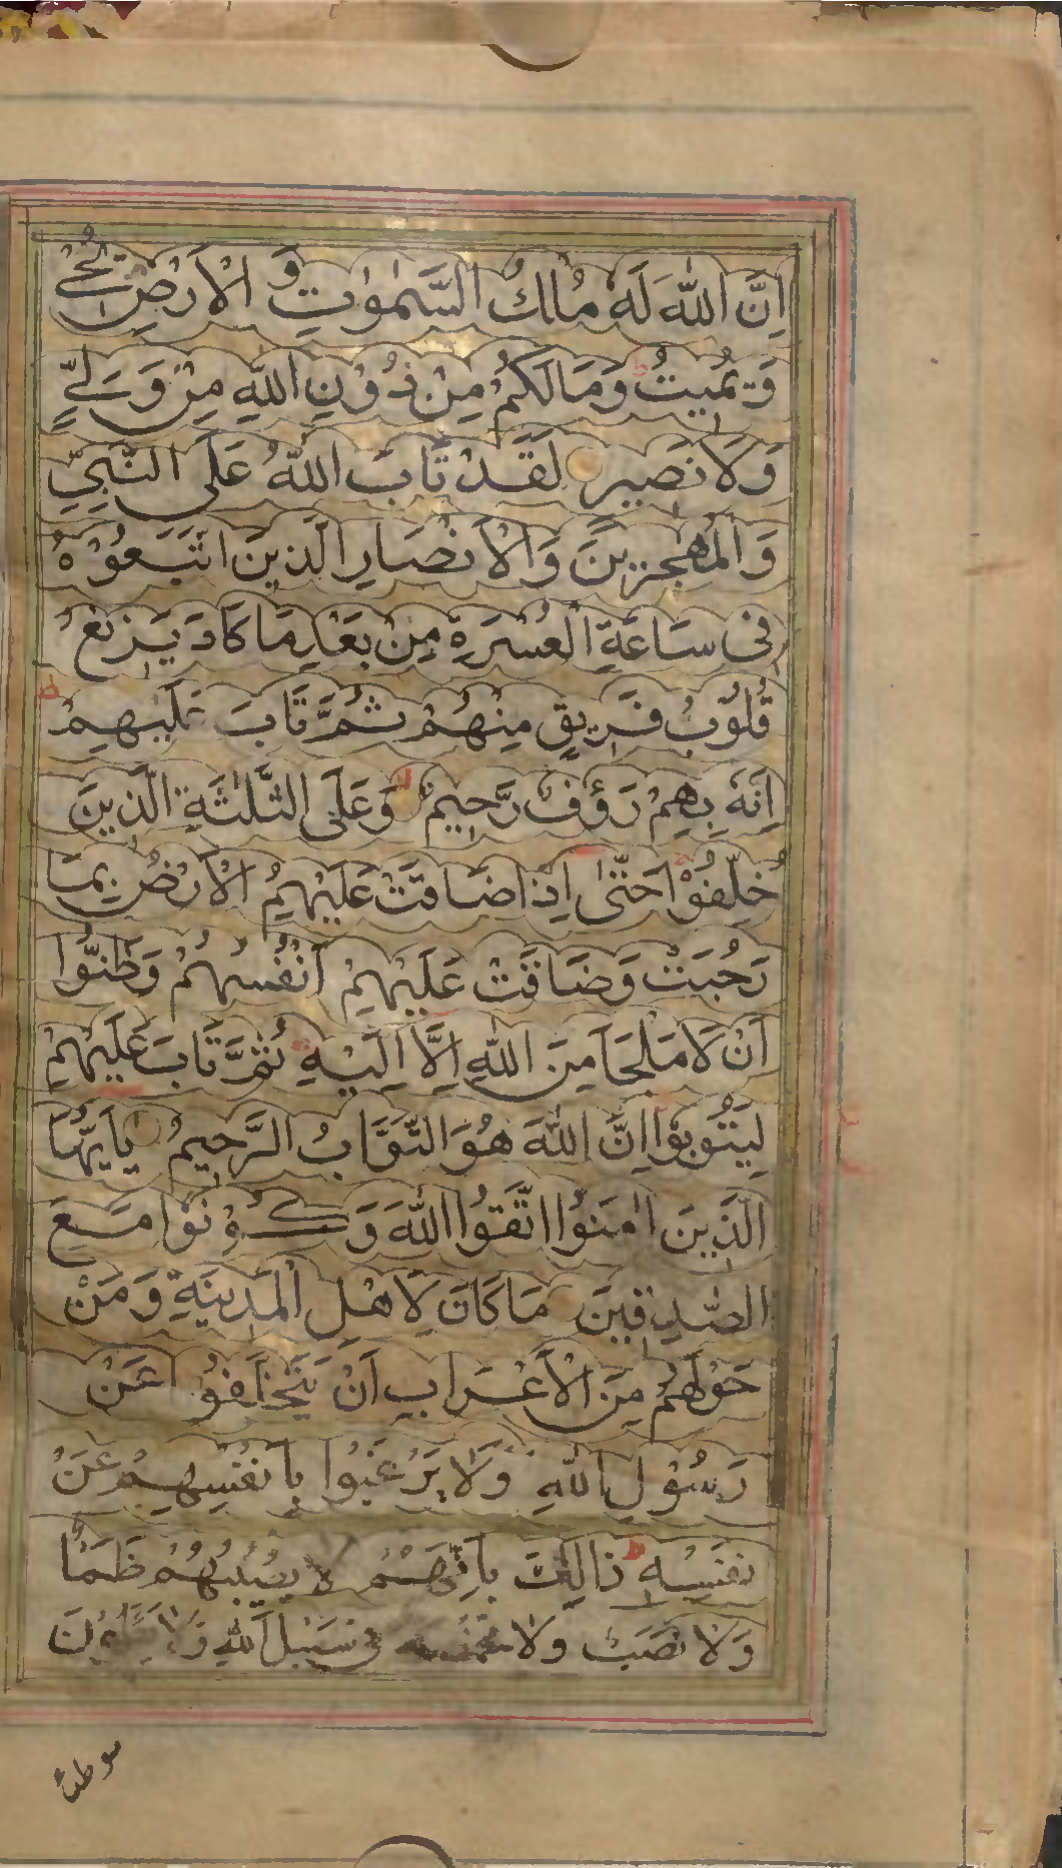 اِنَّ اللّٰهَ لَهٗ مُلْكُ السَّمٰوٰتِ وَ الْاَرْضِ يُحْيٖ
وَ يُمِيْتُ ط وَمَا لَكُمْ مِنْ دُوْنِ اللّٰهِ مِنْ وَلِيٍّ
وَلَا نَصِيْرٍ لَقَدْ تَابَ اللّٰهُ عَلَى النَّبِيِّ
وَالْمُهٰجِرِيْنَ وَالْاَنْصَارِ الَّذِيْنَ اتَّبَعُوْهُ
فِى سَاعَةِ الْعُسْرَةِ مِنْ بَعْدِ مَا كَادَ يَزِيْغُ
قُلُوْبُ فَرِيْقٍ مِنْهُمْ ثُمَّ تَابَ عَلَيْهِمْ ط
اِنَّهٗ بِهِمْ رَؤُفٌ رَّحِيْمٌ لا وَعَلَى الثَّلٰثَةِ الَّذِيْنَ
خُلِّفُوْا حَتّٰى اِذَا ضَاقَتْ عَلَيْهِمُ الْاَرْضُ بِمَا
رَحُبَتْ وَضَاقَتْ عَلَيْهِمْ اَنْفُسُهُمْ وَظَنُّوْا
اَنْ لَا مَلْجَاَ مِنَ اللّٰهِ اِلَّا اِلَيْهِ ثُمَّ تَابَ عَلَيْهِمْ
لِيَتُوْبُوْا اِنَّ اللّٰهَ هُوَ التَّوَّابُ الرَّحِيْمُ يَا اَيُّهَا
الَّذِيْنَ اٰمَنُوا اتَّقُوا اللّٰهَ وَكُوْنُوْا مَعَ
الصّٰدِقِيْنَ مَا كَانَ لِاَهْلِ الْمَدِيْنَةِ وَمَنْ
حَوْلَهُمْ مِنَ الْاَعْرَابِ اَنْ يَتَخَلَّفُوْا عَنْ
رَسُوْلِ اللّٰهِ وَلَا يَرْغَبُوْا بِاَنْفُسِهِمْ عَنْ
نَفْسِهٖ ط ذَالِكَ بِاَنَّهُمْ لَا يُصِيْبُهُمْ ظَمَاٌ
وَلَا نَصَبٌ وَلَا مَخْمَصَةٌ فِى سَبِيْلِ اللّٰهِ وَلَا يَطَؤُنَ
موطئا